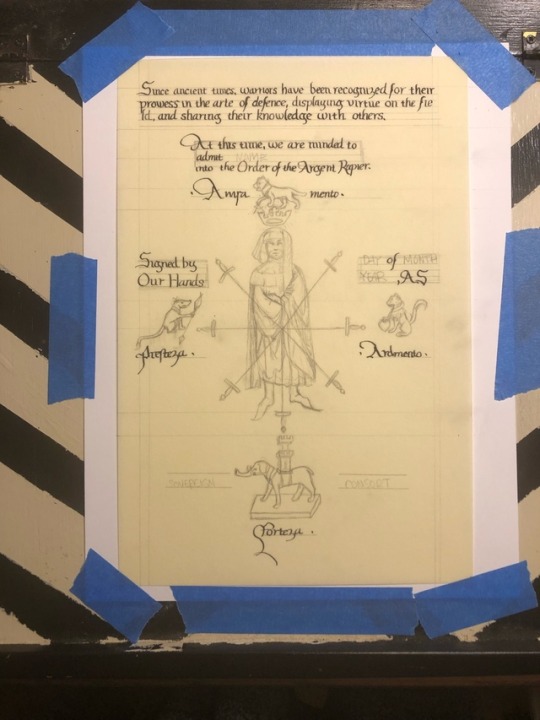 Since ancient times, warriors have been recognized for their
prowess in the arte of defence, displaying virtue on the fie
ld, and sharing their knowledge with others.
At this time, we are minded to
admit NAME
into the Order of the Argent Rapier.
· Avvisa mento ·
Signed by
Our Hands
DAY of MONTH
YEAR, AS
presteza ·
· Ardimento ·
SOVEREIGN
CONSORT
Forteza ·